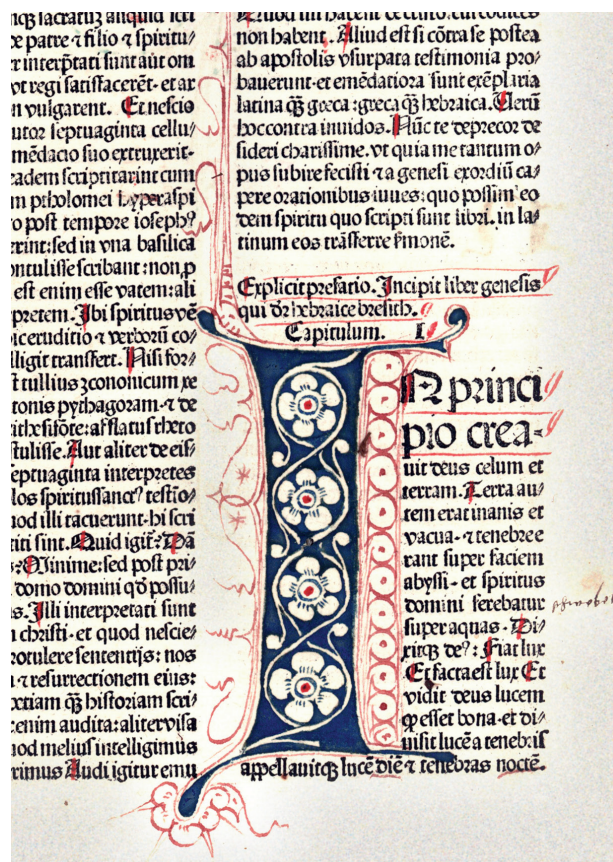 lacratuȝ aliquid scri
patre ⁊ filio ⁊ spiritu⸗
interp̄tati sunt aut om
vt regi satisfacerēt. et ar
vulgarent. Et nescio
septuaginta cellu⸗
mēdacio suo extruxerit.
eadem scriptitarint cum
ptholomei hyperaspi
post tempore ioseph⁹
sed in vna basilica
scribant: non ꝓ
est enim esse vatem: ali
Ibi spiritus vē
eruditio ⁊ verborū co⸗
transfert. Nisi for⸗
tullius
pythagoram. ⁊ de
afflatus rheto
Aut aliter de eis⸗
septuaginta interpretes
spiritussanct⁹ testīo⸗
illi tacuerunt. hi scri
sint. Quid igit᷑: Dā
Minime: sed post pri⸗
domo domini qd̄ possu⸗
Illi interpretati sunt
christi. et quod nescie⸗
sententijs: nos
⁊ resurrectionem eius:
qꝫ historiam scri⸗
enim audita: aliter visa
melius intelligimus
Audi igitur emu
Quod illi habent de cristo. tui codices
non habent. Aliud est si cōtra se postea
ab apostolis vsurpata testimonia pro⸗
bauerunt. et emēdatiora sunt exēplaria
latina qꝫ greca: greca qꝫ hebraica. Uerū
hoc contra inuidos. Nūc te deprecor de
sideri charissime. vt quia me tantum o⸗
pus subire fecisti ⁊ a genesi exordiū ca⸗
pere orationibus iuues: quo possim eo
dem spiritu quo scripti sunt libri. in la⸗
tinum eos trāsferre s̄monē.
Explicit prefatio. Incipit liber genesis
qui dr̄ hebraice bresith.
Capitulum. I.
IN princi
pio crea⸗
uit deus celum et
terram. Terra au⸗
tem erat inanis et
vacua. ⁊ tenebre e
rant super faciem
abyssi. et spiritus
domini ferebatur
super aquas. Di⸗
xitqꝫ de⁹: Fiat lux
Et facta est lux Et
vidit deus lucem
ꝙ esset bona. et di⸗
uisit lucē a tenebris
appellauitqꝫ lucē diē ⁊ tenebras noctē.